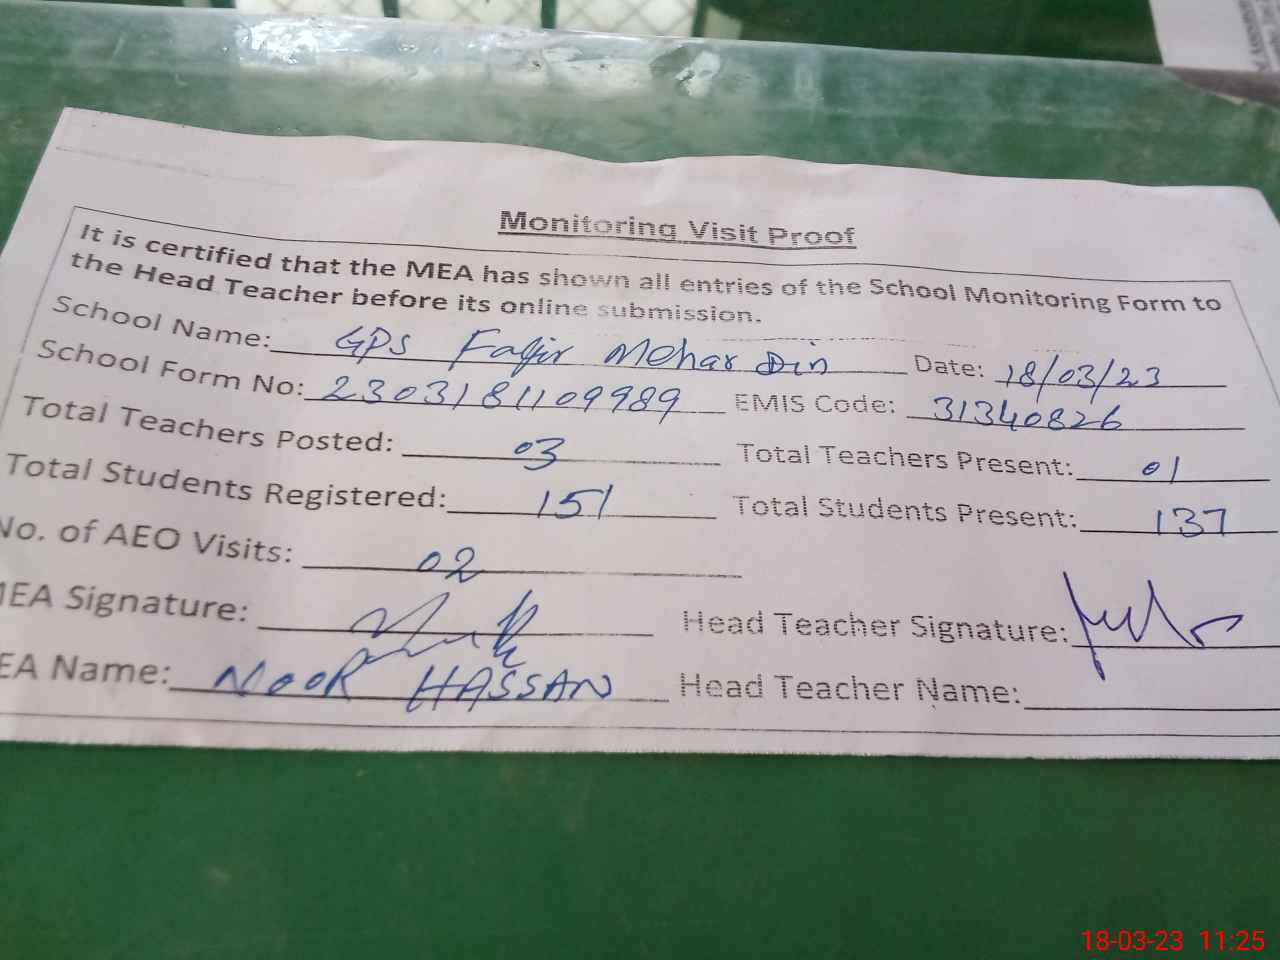 Monitoring Visit Proof
It is certified that the MEA has shown all entries of the School Monitoring Form to
the Head Teacher before its online submission.
School Name: GPS Faqir Mehar Din Date: 18/03/23
School Form No: 2303181109989 EMIS Code: 31340826
Total Teachers Posted: 03 Total Teachers Present: 01
Total Students Registered: 151 Total Students Present: 137
No. of AEO Visits: 02
MEA Signature: Head Teacher Signature:
EA Name: NOOR HASSAN Head Teacher Name:
18-03-23 11:25